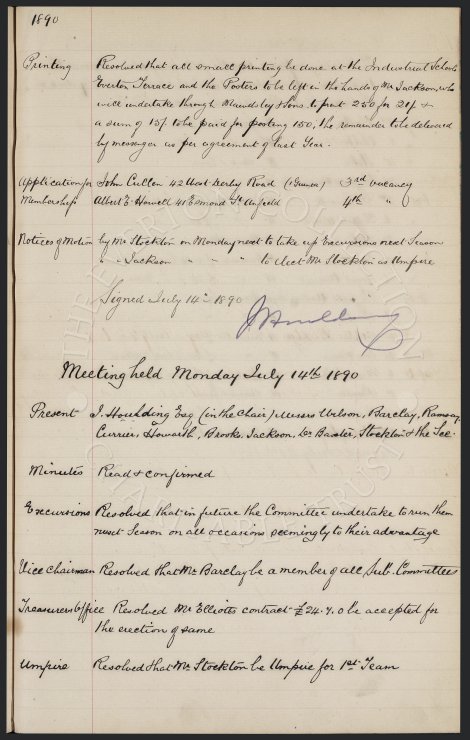 1890
Printing Resolved that all small printing be done at the Industrial Schools
Everton Terrace and the Posters to be left in the hands of Mr Jackson, who
will undertake through Maundsley & Sons to print 250 for 20/- &
a sum of 15/- to be paid for posting 150, the remainder to be delivered
by messenger as per agreement of last Year.
Application for John Cullen 42 West Derby Road 3rd vacancy
Membership Albert E. Howell 41 Esmond St Anfield 4th "
Notices of Motion by Mr Stockton on Monday next to take up Excursions next Season
" " Jackson " " " to elect Mr Stockton as Umpire
Signed July 14th 1890
J Houlding
Meeting held Monday July 14th 1890
Present J. Houlding Esq (in the Chair) Messrs Wilson, Barclay, Ramsay,
Currier, Howarth, Brooks, Jackson, Dr Baxter, Stockton & the Sec.
Minutes Read & confirmed
Excursions Resolved that in future the Committee undertake to run them
next Season on all occasions seemingly to their advantage
Vice Chairman Resolved that Mr Barclay be a member of all Sub. Committees
Treasurers Office Resolved Mr Elliotts contract £24.7.0 be accepted for
the erection of same
Umpire Resolved that Mr Stockton be Umpire for 1st Team